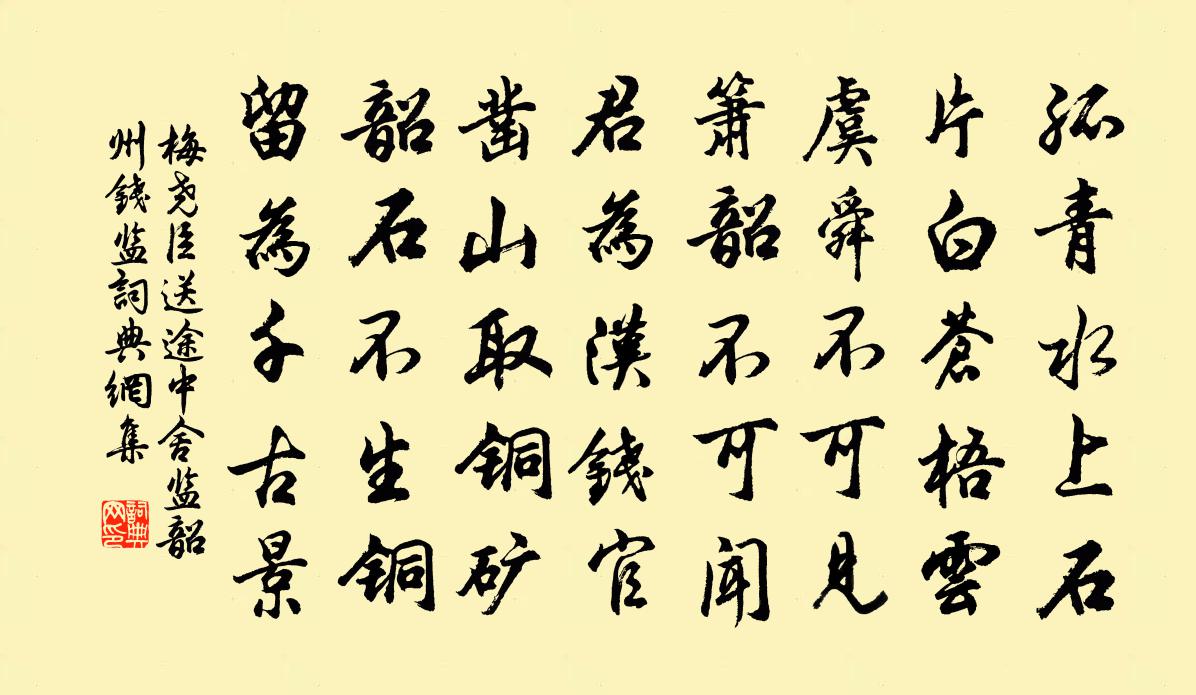 孤青水上石
片白苍梧雲
虞舜不可見
箫韶不可聞
君為漢錢官
凿山取铜矿
韶石不生铜
留為千古景
梅尧臣送途中舍监韶
州錢监詞典網集
詞典
网印